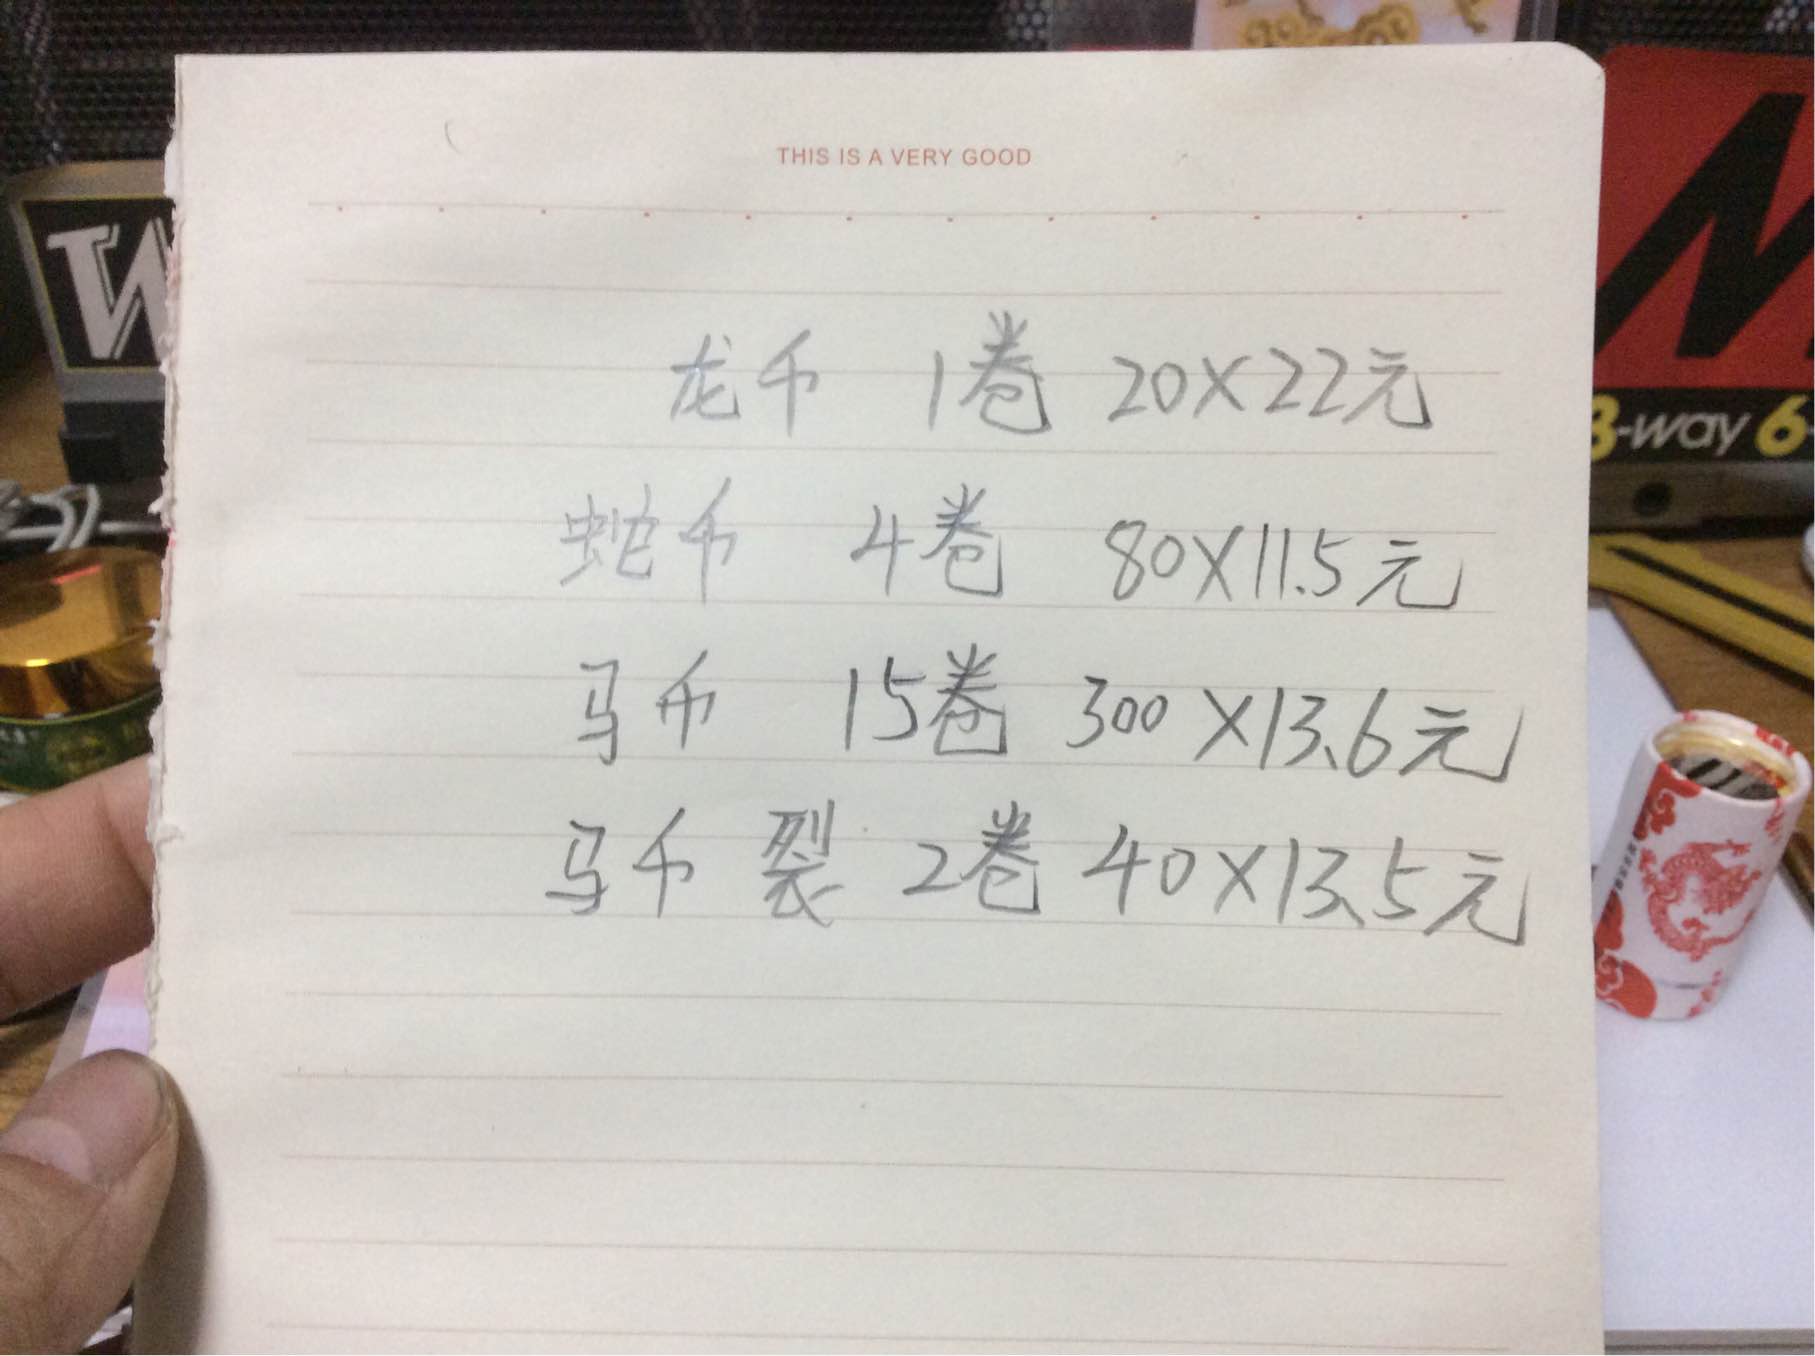 THIS IS A VERY GOOD
龙币 1卷 20X22元
蛇币 4卷 80X11.5元
马币 15卷 300X13.6元
马币 裂 2卷 40X13.5元
3-way 6-